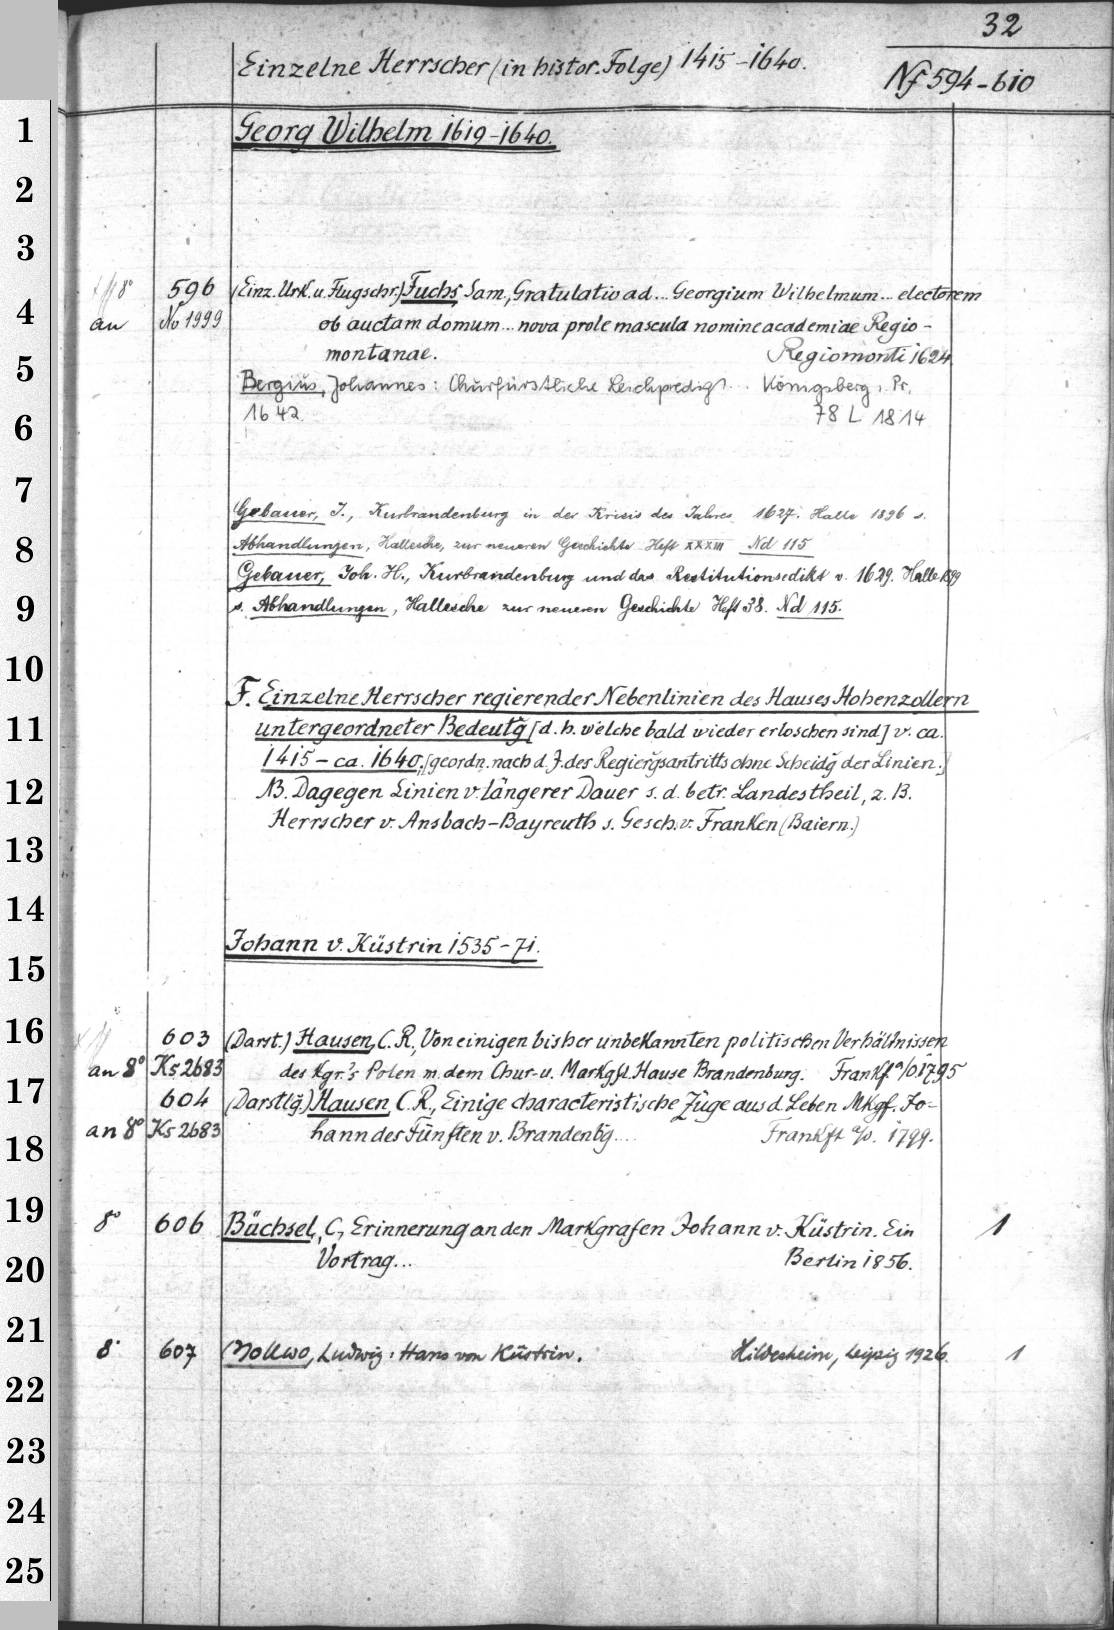 32
Einzelne Herrscher (in histor. Folge) 1415-1640.
Nf 594-610
1
Georg Wilhelm 1619-1640.
2
3
8° 596 (Einz. Urk. u. Flugschr.) Fuchs Sam., Gratulatio ad... Georgium Wilhelmum... electorem
4
an No 1999 ob auctam domum... nova prole mascula nomine academiae Regio-
5
montanae. Regiomonti 1624.
Bergius, Johannes: Churfürstliche Leichpredigt... Königsberg i. Pr.
6
1642. 78 L 1814
7
Gebauer, J., Kurbrandenburg in der Krisis des Jahres 1627. Halle 1896 s.
8
Abhandlungen, Hallesche, zur neueren Geschichte Heft XXXIII Nd 115
Gebauer, Joh. H., Kurbrandenburg und das Restitutionsedikt v. 1629. Halle 1899
9
s. Abhandlungen, Hallesche zur neueren Geschichte Heft 38. Nd 115.
10
F. Einzelne Herrscher regierender Nebenlinien des Hauses Hohenzollern
11
untergeordneter Bedeutg̃ [d. h. welche bald wieder erloschen sind] v. ca.
1415 - ca. 1640. [geordn. nach d. J. des Regierg̃santritts ohne Scheidg̃ der Linien.]
12
NB. Dagegen Linien v. längerer Dauer s. d. betr. Landestheil, z. B.
Herrscher v. Ansbach-Bayreuth s. Gesch. v. Franken (Baiern.)
13
14
Johann v. Küstrin 1535-71.
15
16
603 (Darst.) Hausen, C. R., Von einigen bisher unbekannten politischen Verhältnissen
an 8° Ks 2683 des Kgr.'s Polen m. dem Chur- u. Markgfl. Hause Brandenburg. Frankf. a/O. 1795
17
604 (Darstllg̃.) Hausen, C. R., Einige characteristische Züge aus d. Leben Mkgf. Jo-
an 8° Ks 2683 hann des Fünften v. Brandenbg̃.... Frankft a/o. 1799.
18
19
8° 606 Büchsel, C., Erinnerung an den Markgrafen Johann v. Küstrin. Ein 1
20
Vortrag... Berlin 1856.
21
8° 607 Mollwo, Ludwig: Hans von Küstrin. Hildesheim, Leipzig 1926. 1
22
23
24
25